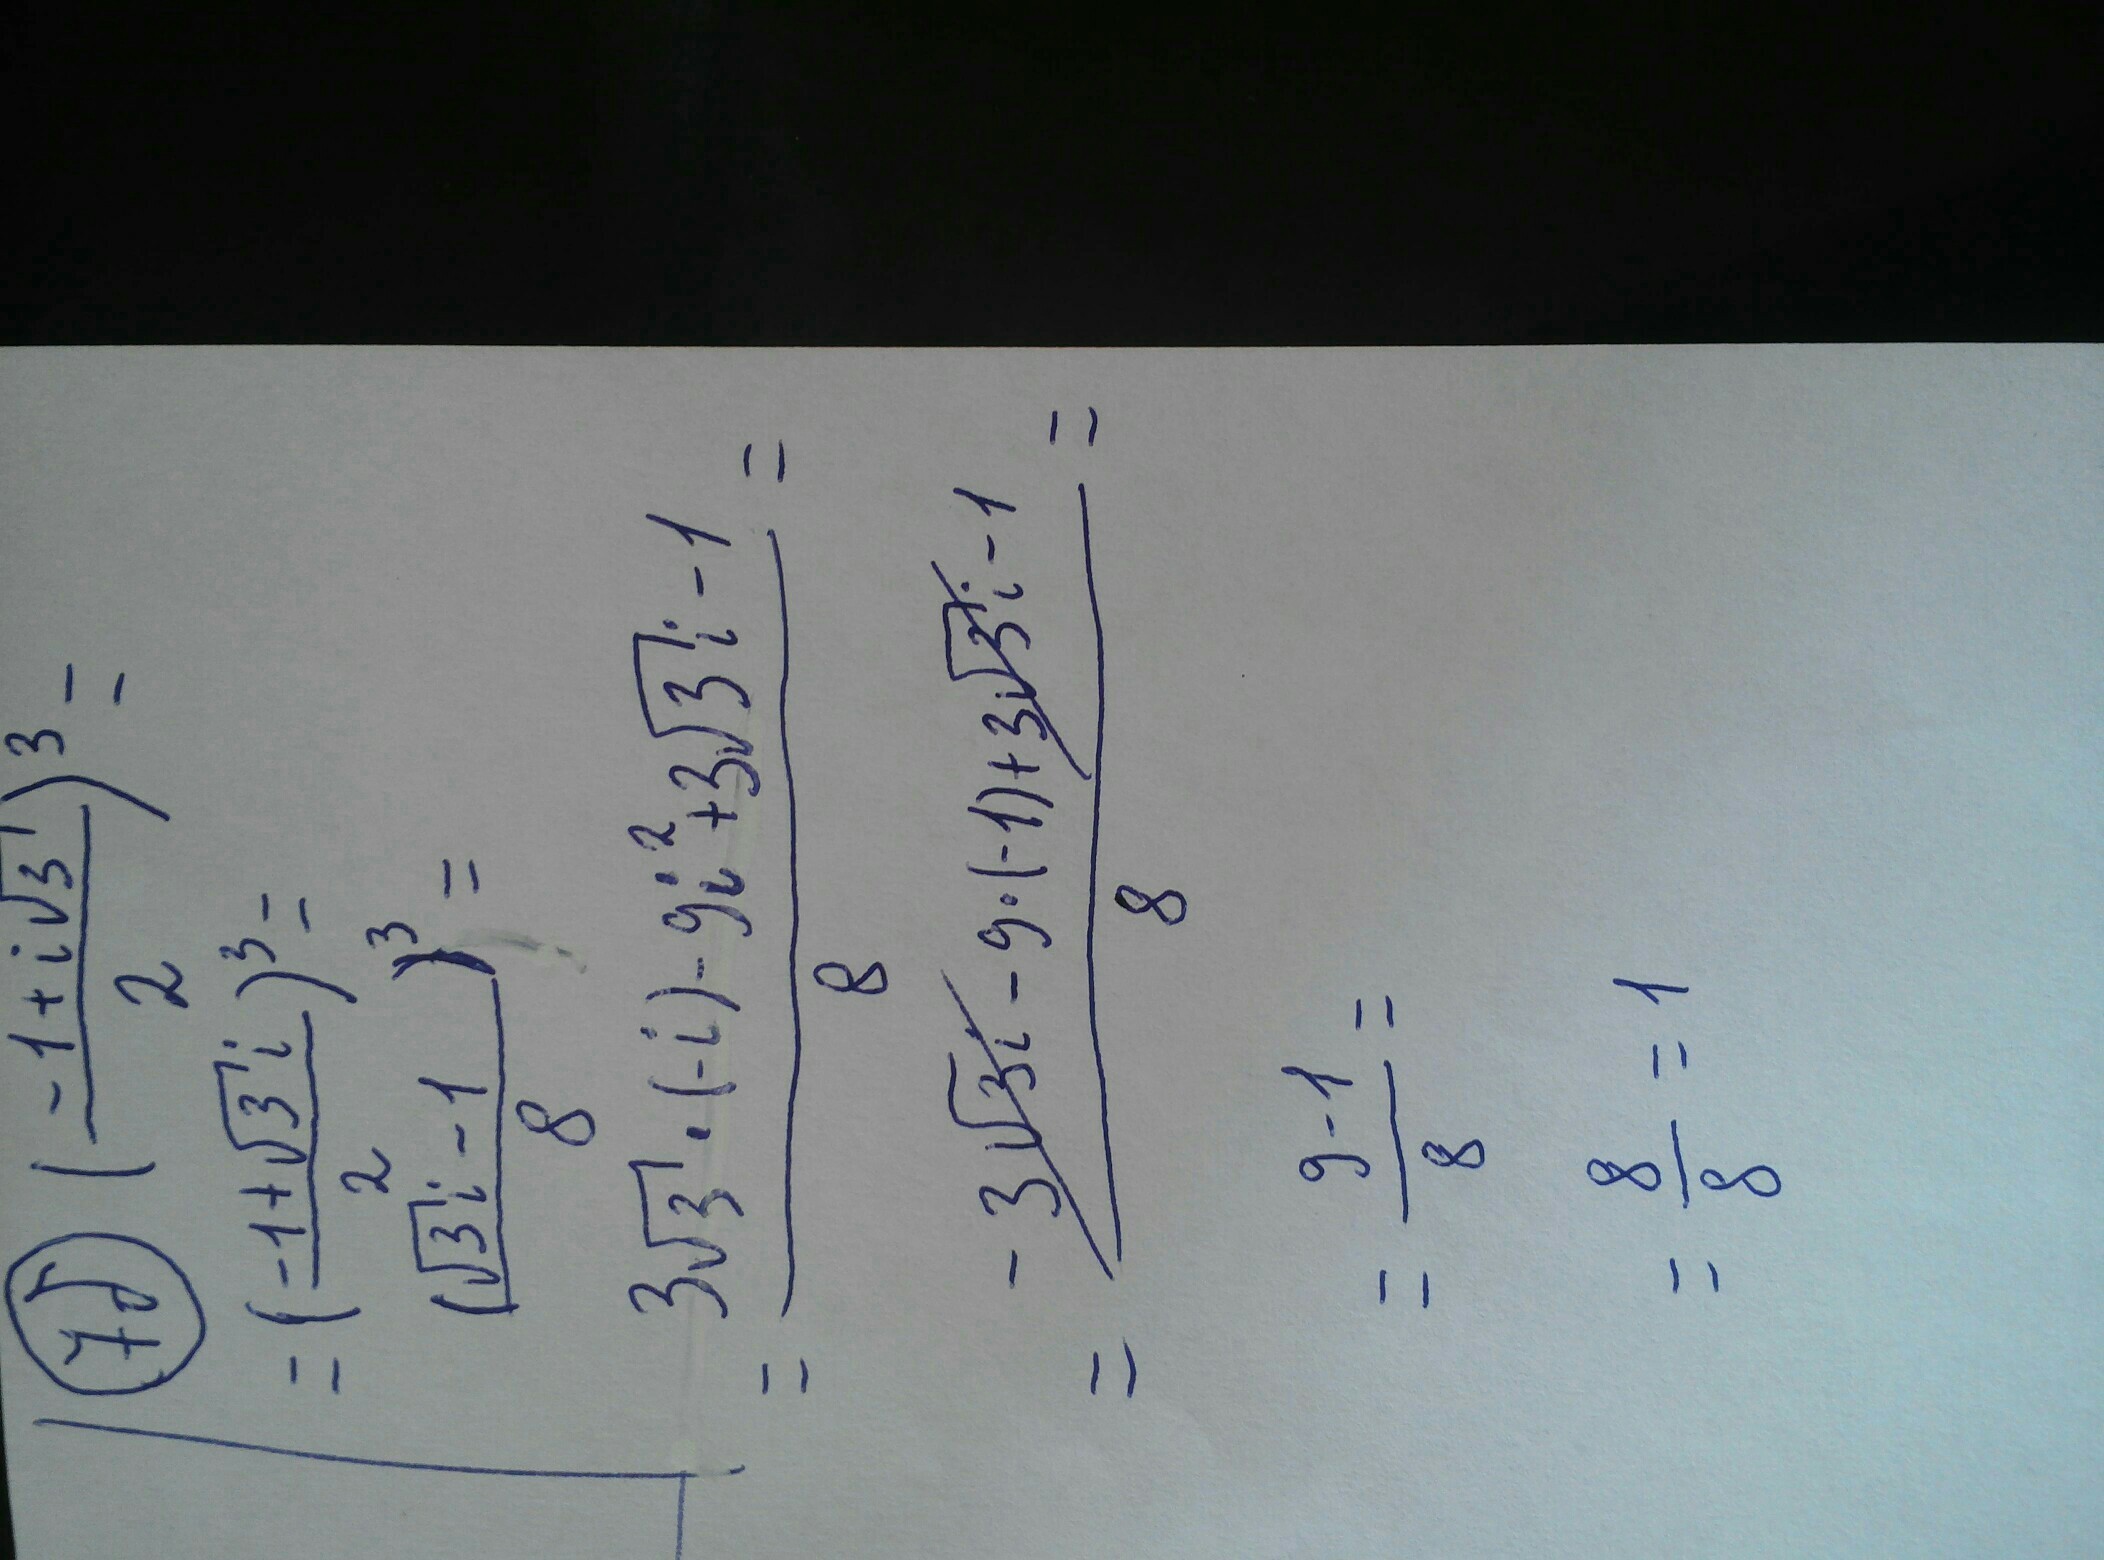 75) (-1+i√3/2)³=
=(-1+√3i/2)³=
(√3i-1)³/8=
=3√3·(-i)-9i²+3√3i-1/8=
=-3√3i-9·(-1)+3√3i-1/8=
=9-1/8=
=8/8=1